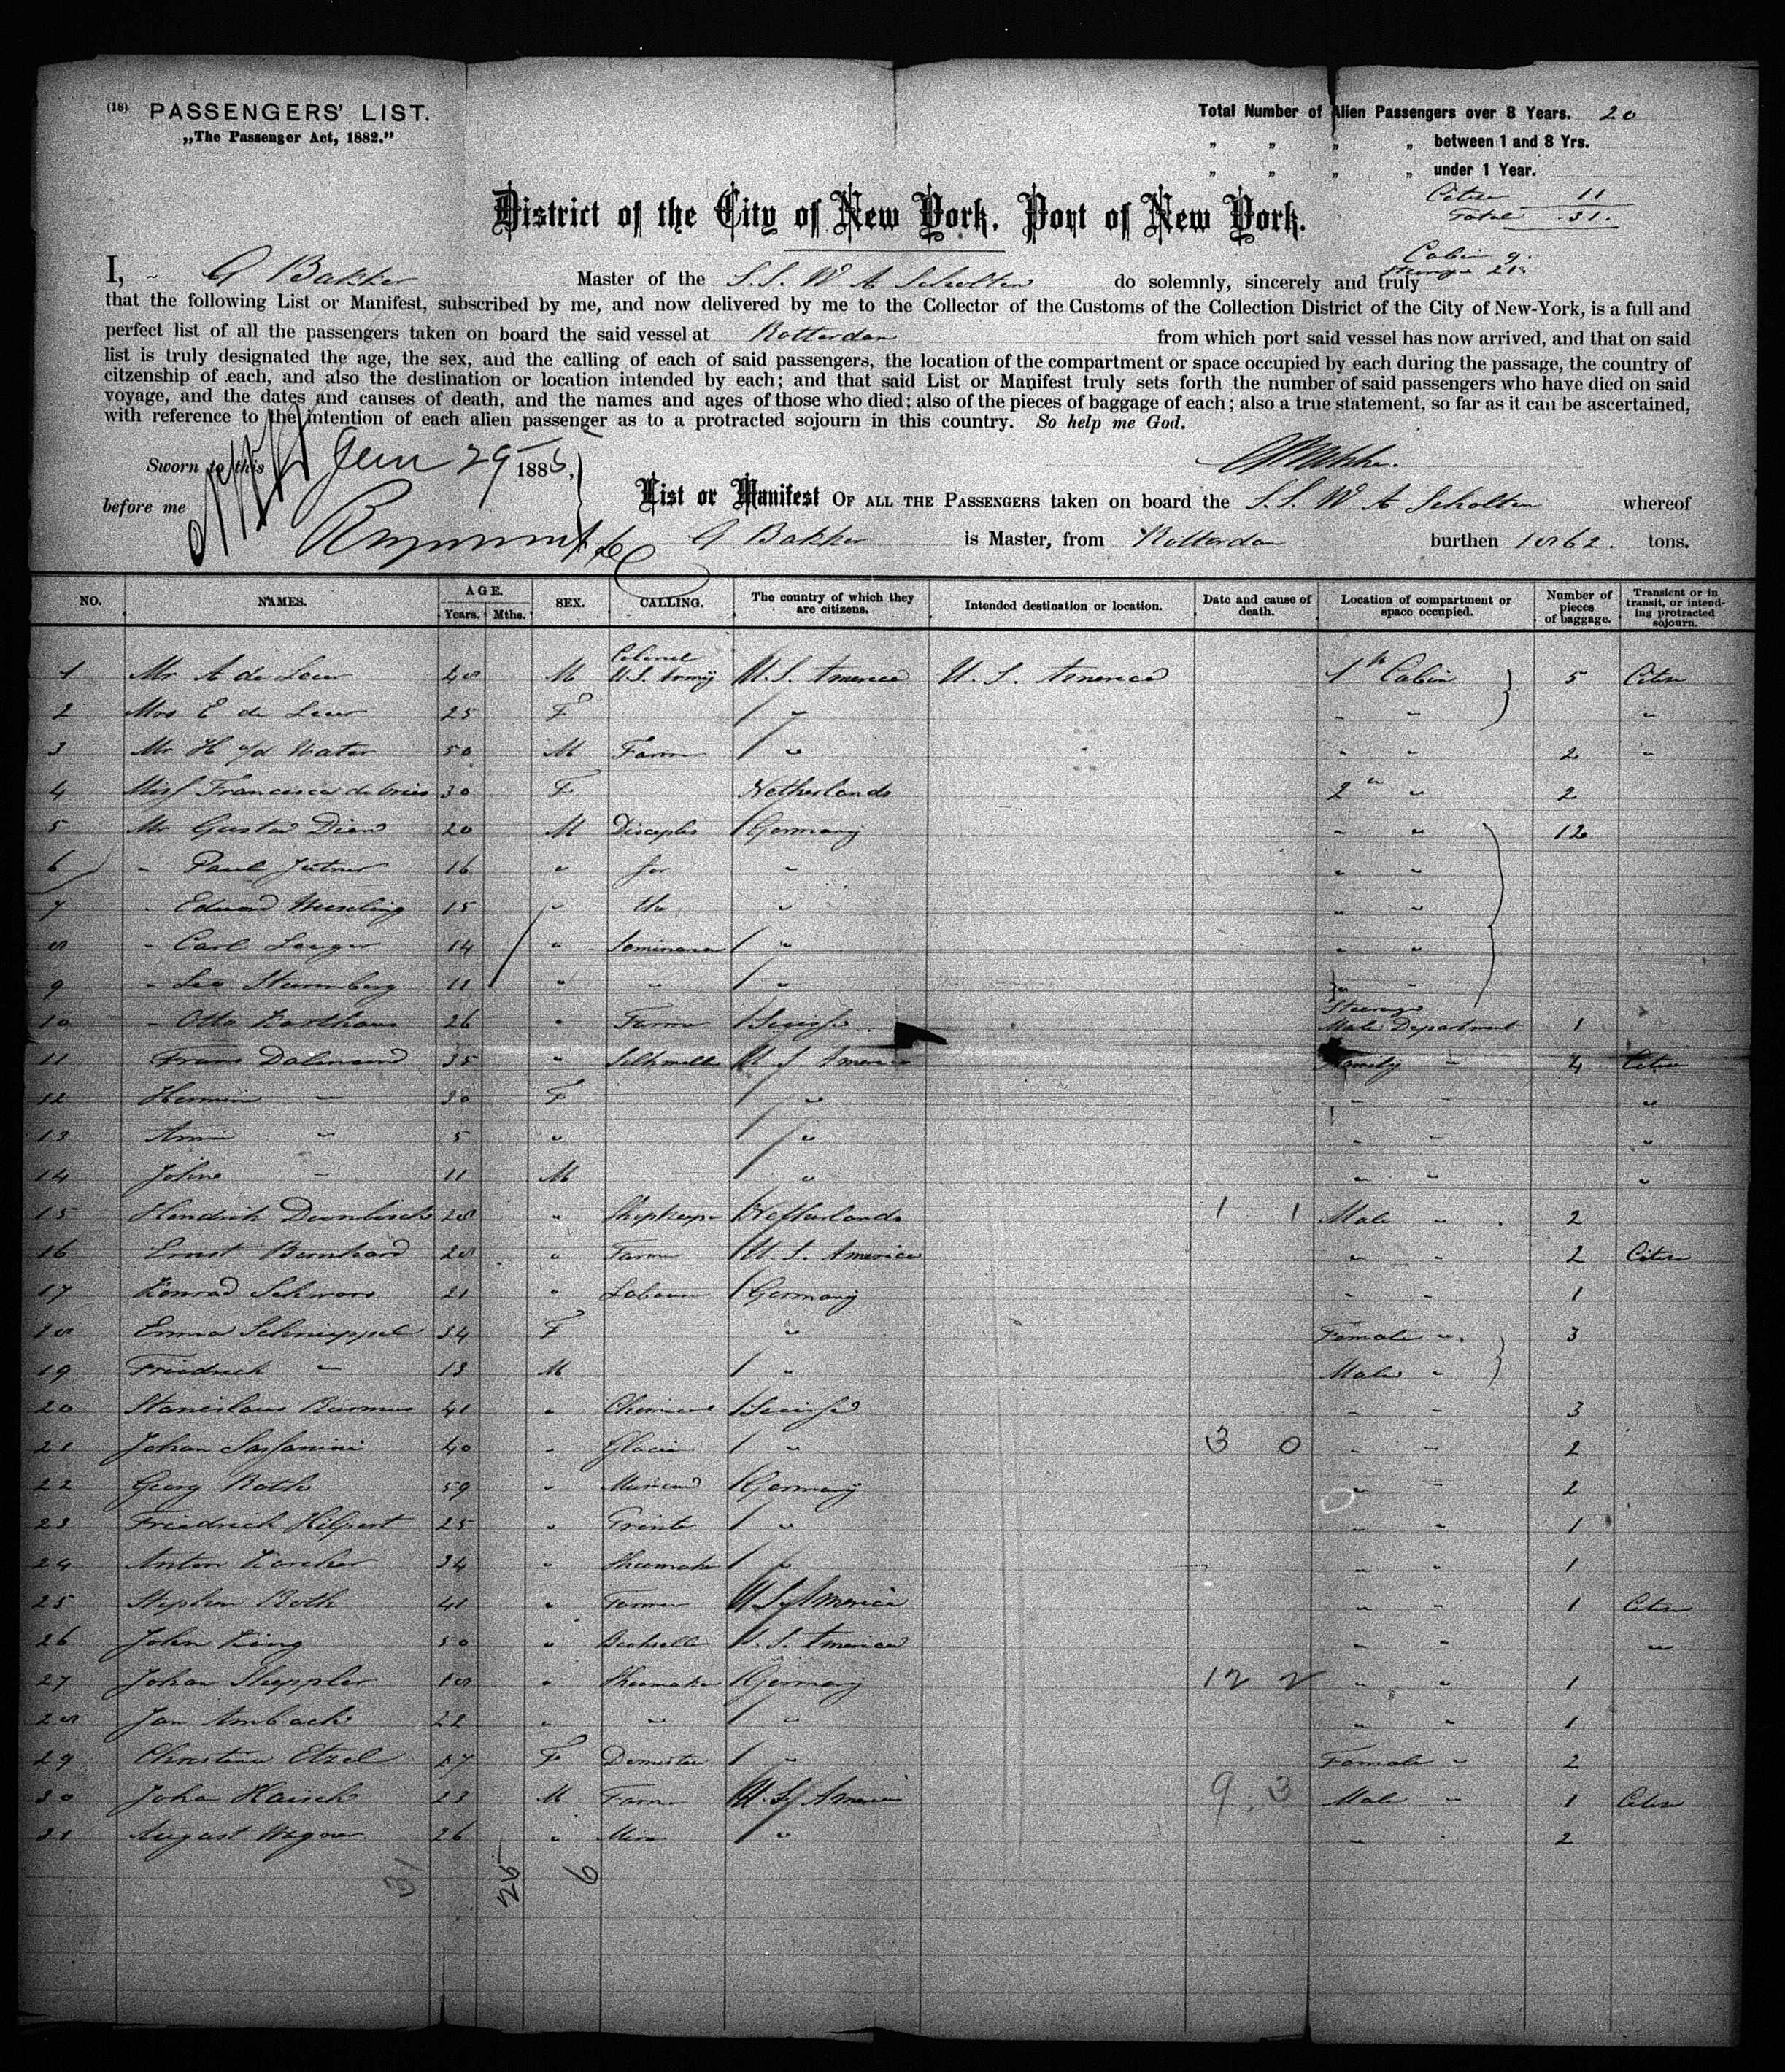 (18) PASSENGERS' LIST.
„The Passenger Act, 1882."
Total Number of Alien Passengers over 8 Years. 20
„ „ „ „ between 1 and 8 Yrs.
„ „ „ „ under 1 Year.
Citize 11
Total 31.
District of the City of New York, Port of New York.
Cabin 9.
Steerage 21
I, G Bakker Master of the S.S. W A Scholten do solemnly, sincerely and truly
that the following List or Manifest, subscribed by me, and now delivered by me to the Collector of the Customs of the Collection District of the City of New-York, is a full and
perfect list of all the passengers taken on board the said vessel at Rotterdam from which port said vessel has now arrived, and that on said
list is truly designated the age, the sex, and the calling of each of said passengers, the location of the compartment or space occupied by each during the passage, the country of
citzenship of each, and also the destination or location intended by each; and that said List or Manifest truly sets forth the number of said passengers who have died on said
voyage, and the dates and causes of death, and the names and ages of those who died; also of the pieces of baggage of each; also a true statement, so far as it can be ascertained,
with reference to the intention of each alien passenger as to a protracted sojourn in this country. So help me God.
Sworn to this 29 188
before me
List or Manifest OF ALL THE PASSENGERS taken on board the S.S. W A Scholten whereof
G Bakker is Master, from Rotterdam burthen 1862. tons.
NO. NAMES. AGE. Years. Mths. SEX. CALLING. The country of which they are citizens. Intended destination or location. Date and cause of death. Location of compartment or space occupied. Number of pieces of baggage. Transient or in transit, or intending protracted sojourn.
1 Mr A de Leur 48 M Colonel U.S. Army U.S. America U.S. America 1st Cabin 5 Citize
2 Mrs E de Leur 25 F " " " "
3 Mr H v/d Water 50 M Farm " " " 2 "
4 Miss Francisca de Vries 30 F Netherlands 2e " 2
5 Mr Gustav 20 M Disciples Germany " " 12
6 " Paul 16 " for " " "
7 " Eduard 15 " the " " "
8 " Carl Langer 14 " Seminar " " "
9 " Leo Sturmberg 11 " " " " "
10 " Otto Karthaus 26 " Farm Steerage Male Department 1
11 Frans 35 " U.S. America Family " 4 Citize
12 " 30 F " " " "
13 " 5 " " " " "
14 " 11 M " " " "
15 Hendrik 28 " Shopkeeper Netherlands 1 1 Male " 2
16 Ernst Bernhard 28 " Farm U.S. America " " 2 Citize
17 Konrad Schwarz 21 " Labour Germany " " 1
18 Emma Schnieppel 34 F " Female " 3
19 Friedrich " 13 M " Male "
20 Stanislaus 41 " " " 3
21 Johan Sassanini 40 " " 3 0 " " 2
22 Georg Roth 59 " Germany " " 2
23 Friedrich Hilpert 25 " " " " 1
24 Anton Karcher 34 " Shoemake " " " 1
25 Stephan Roth 41 " Farmer U.S. America " " 1 Citize
26 John King 50 " U.S. America " " "
27 Johan Sheppler 18 " Shoemake Germany 12 2 " " 1
28 Jan Ambach 22 " " " " " 1
29 Christina Etzel 27 F Domestic " Female " 2
30 John Haisch 23 M Farm U.S. America 9 3 Male " 1 Citize
31 August Wagner 26 " " " " 2
31 25 6